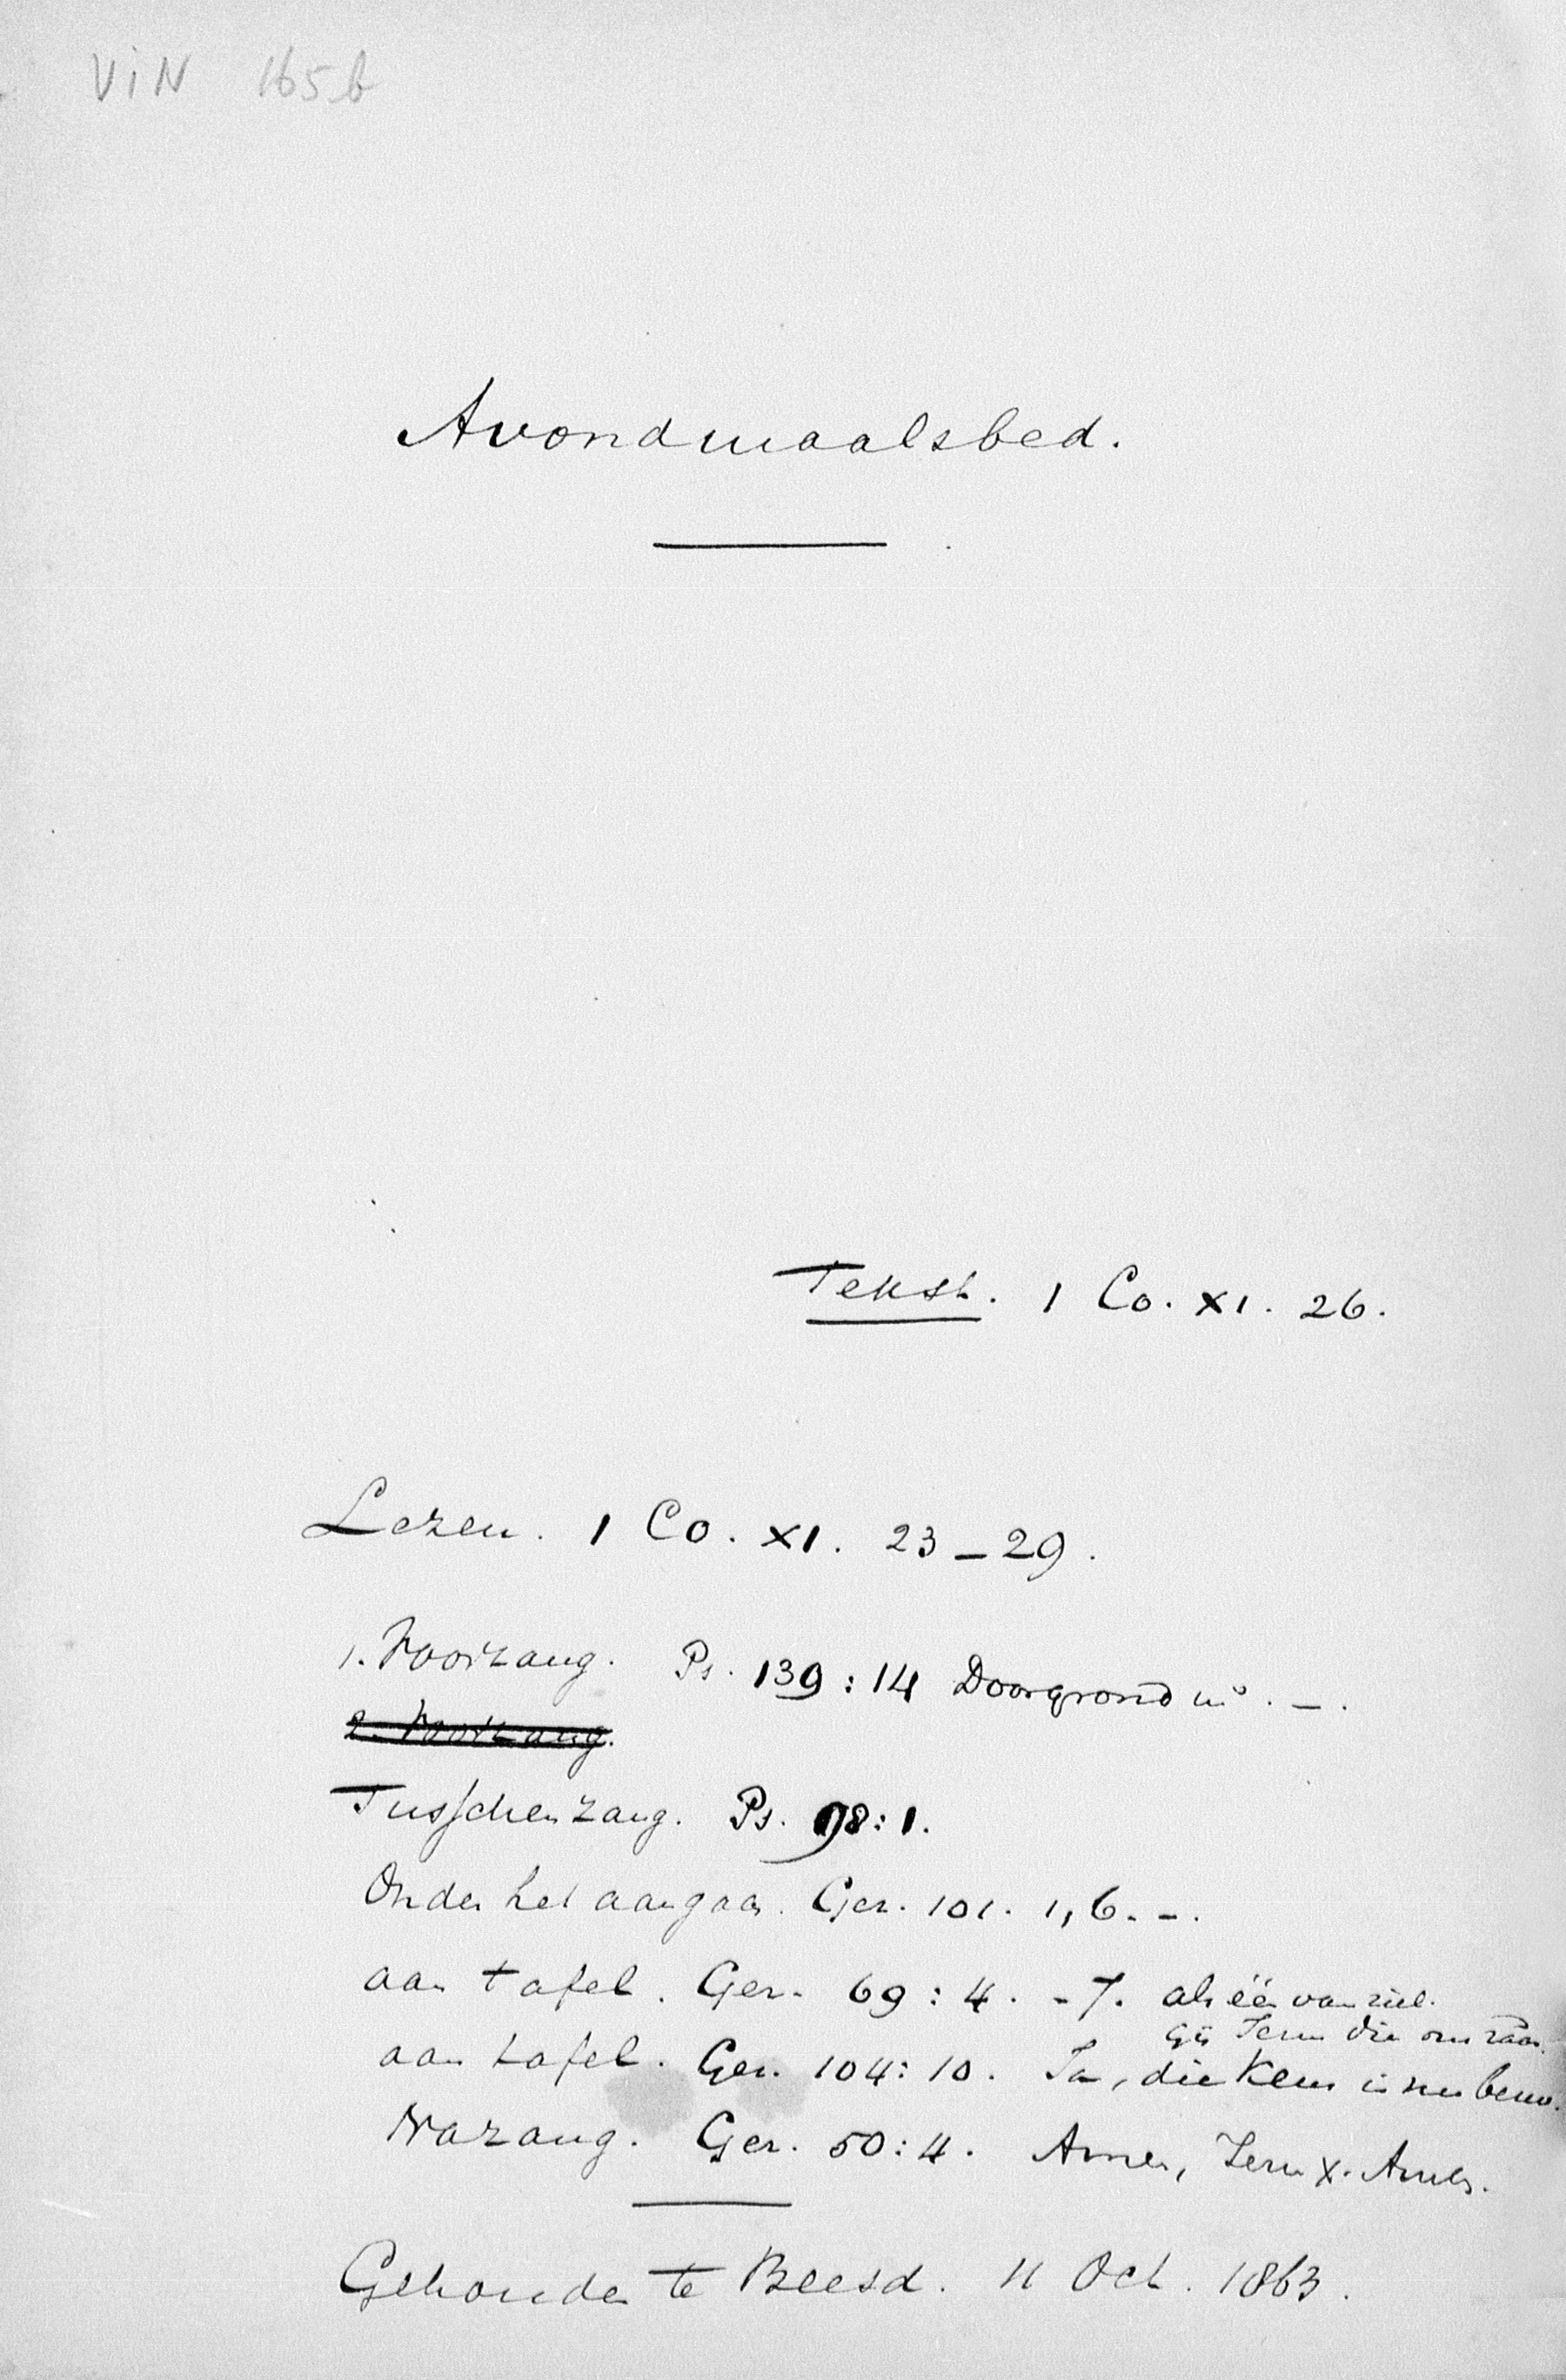 ViN 165b
Avondmaalsbed.
Tekst. 1 Co. XI. 26.
Lezen. 1 Co. XI. 23-29.
1. Voorzang. Ps. 139:14 Doorgrond m'. -.
2. Voorzang.
Tusschenzang. Ps. 98:1.
Onder het aangaan. Gez. 101. 1, 6. -.
aan tafel. Gez. 69:4. -7. als één van ziel.
Gij Jezus die ons
aan tafel. Gez. 104:10. Ja, die Kem is
Nazang. Gez. 50:4. Amen, Jezus X. Amen.
Gehouden te Beesd. 11 Oct. 1863.